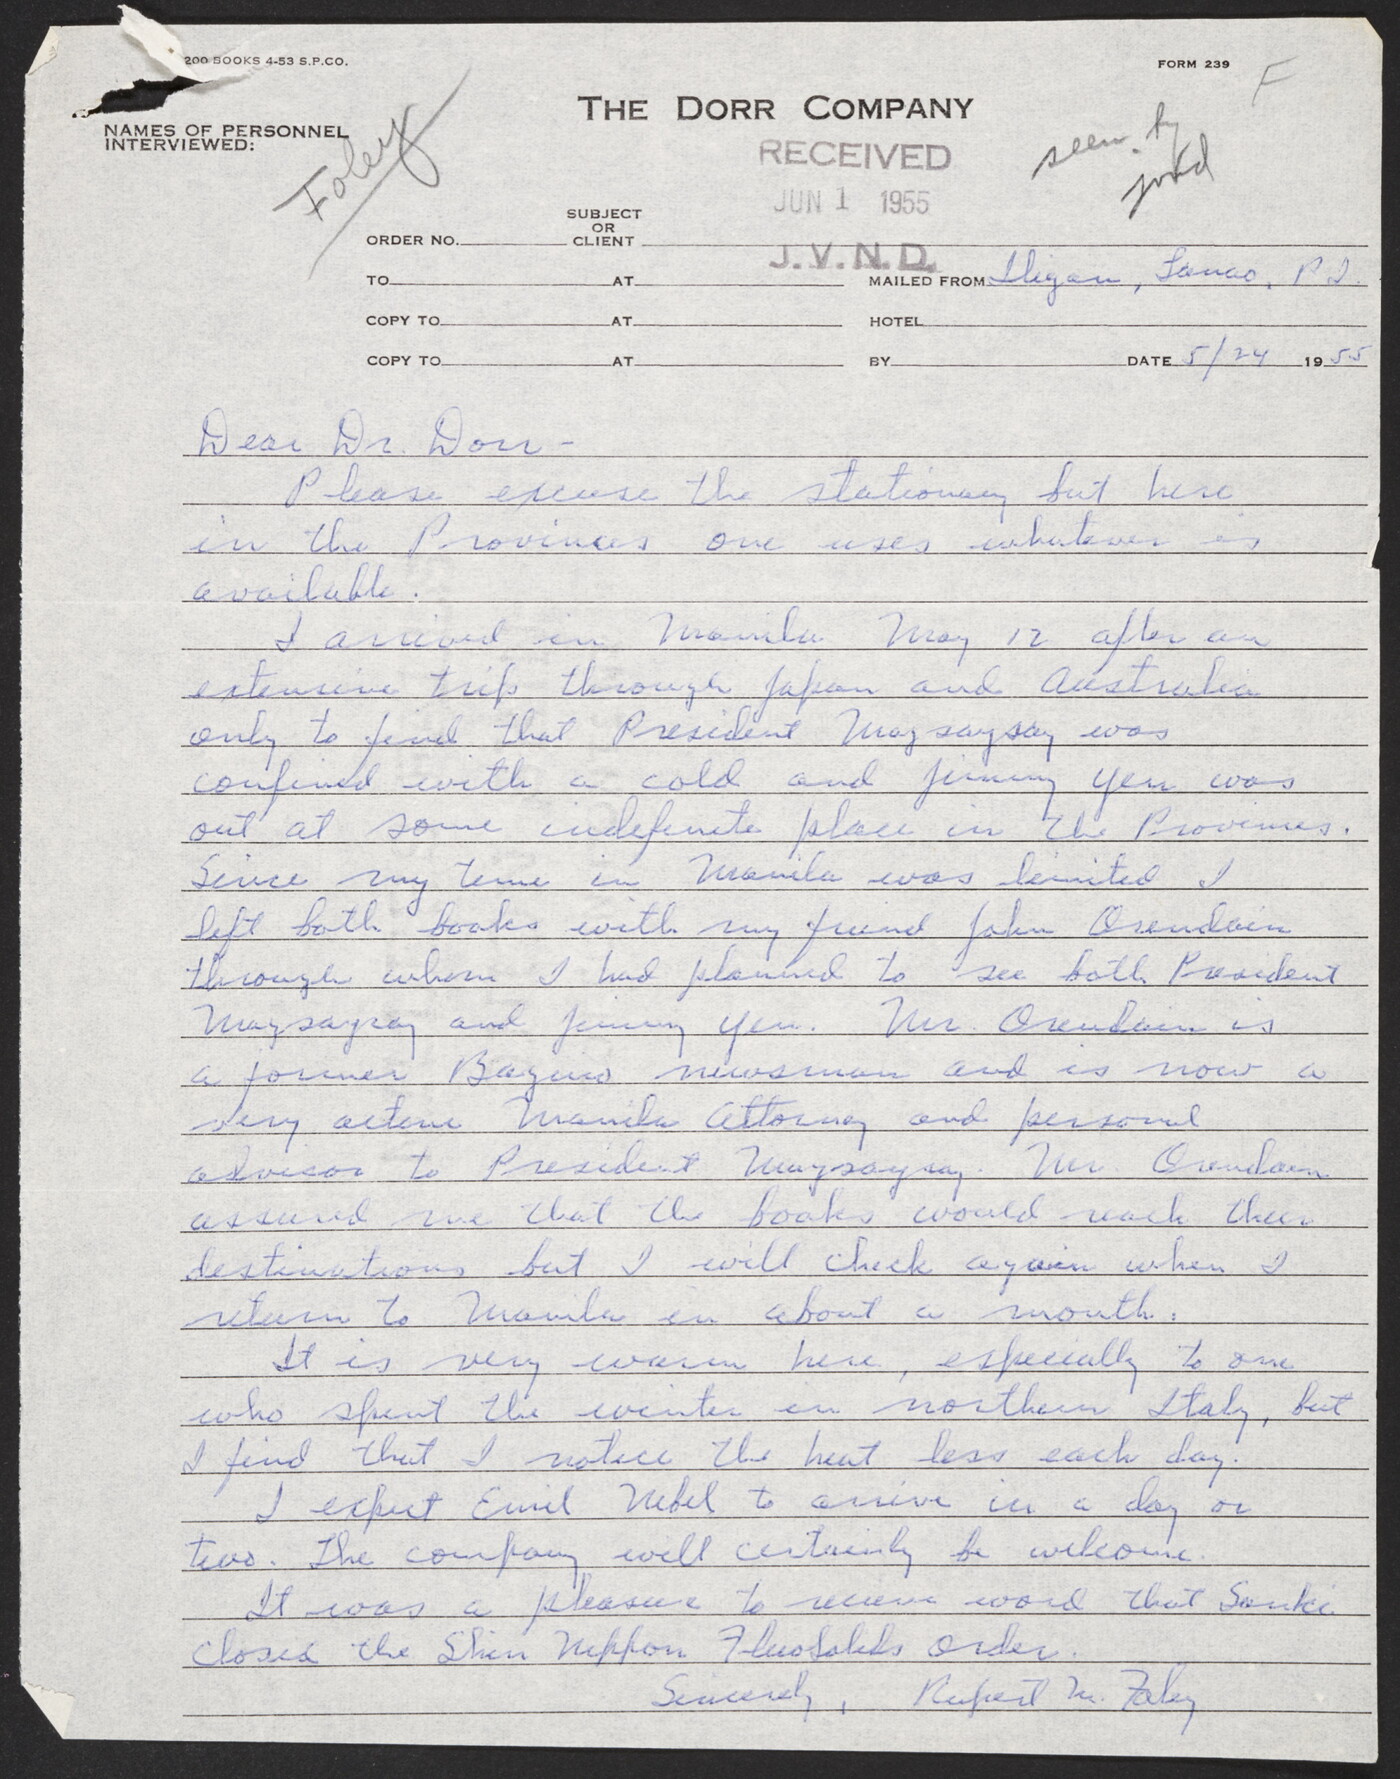 200 BOOKS 4-53 S.P.CO.
FORM 239
F
THE DORR COMPANY
NAMES OF PERSONNEL
INTERVIEWED:
Foley
RECEIVED
JUN 1 1955
J.V.N.D.
seen by
jvnd
ORDER NO. SUBJECT OR CLIENT
TO AT MAILED FROM Iligan, Lanao, P.I.
COPY TO AT HOTEL
COPY TO AT BY DATE 5/24 1955
Dear Dr. Dorr -
Please excuse the stationary but here
in the Provinces one uses whatever is
available.
I arrived in Manila May 12 after an
extensive trip through Japan and Australia
only to find that President Maysaysay was
confined with a cold and Jimmy Yen was
out at some indefinite place in the Provinces.
Since my time in Manila was limited I
left both books with my friend John Orendain
through whom I had planned to see both President
Maysaysay and Jimmy Yen. Mr. Orendain is
a former Baguio newsman and is now a
very active Manila Attorney and personal
advisor to President Maysaysay. Mr. Orendain
assured me that the books would reach their
destinations but I will check again when I
return to Manila in about a month.
It is very warm here, especially to one
who spent the winter in northern Italy, but
I find that I notice the heat less each day.
I expect Emil Nebel to arrive in a day or
two. The company will certainly be welcome.
It was a pleasure to receive word that Sanki
closed the Shin Nippon FluoSolids order.
Sincerely, Rupert M. Foley